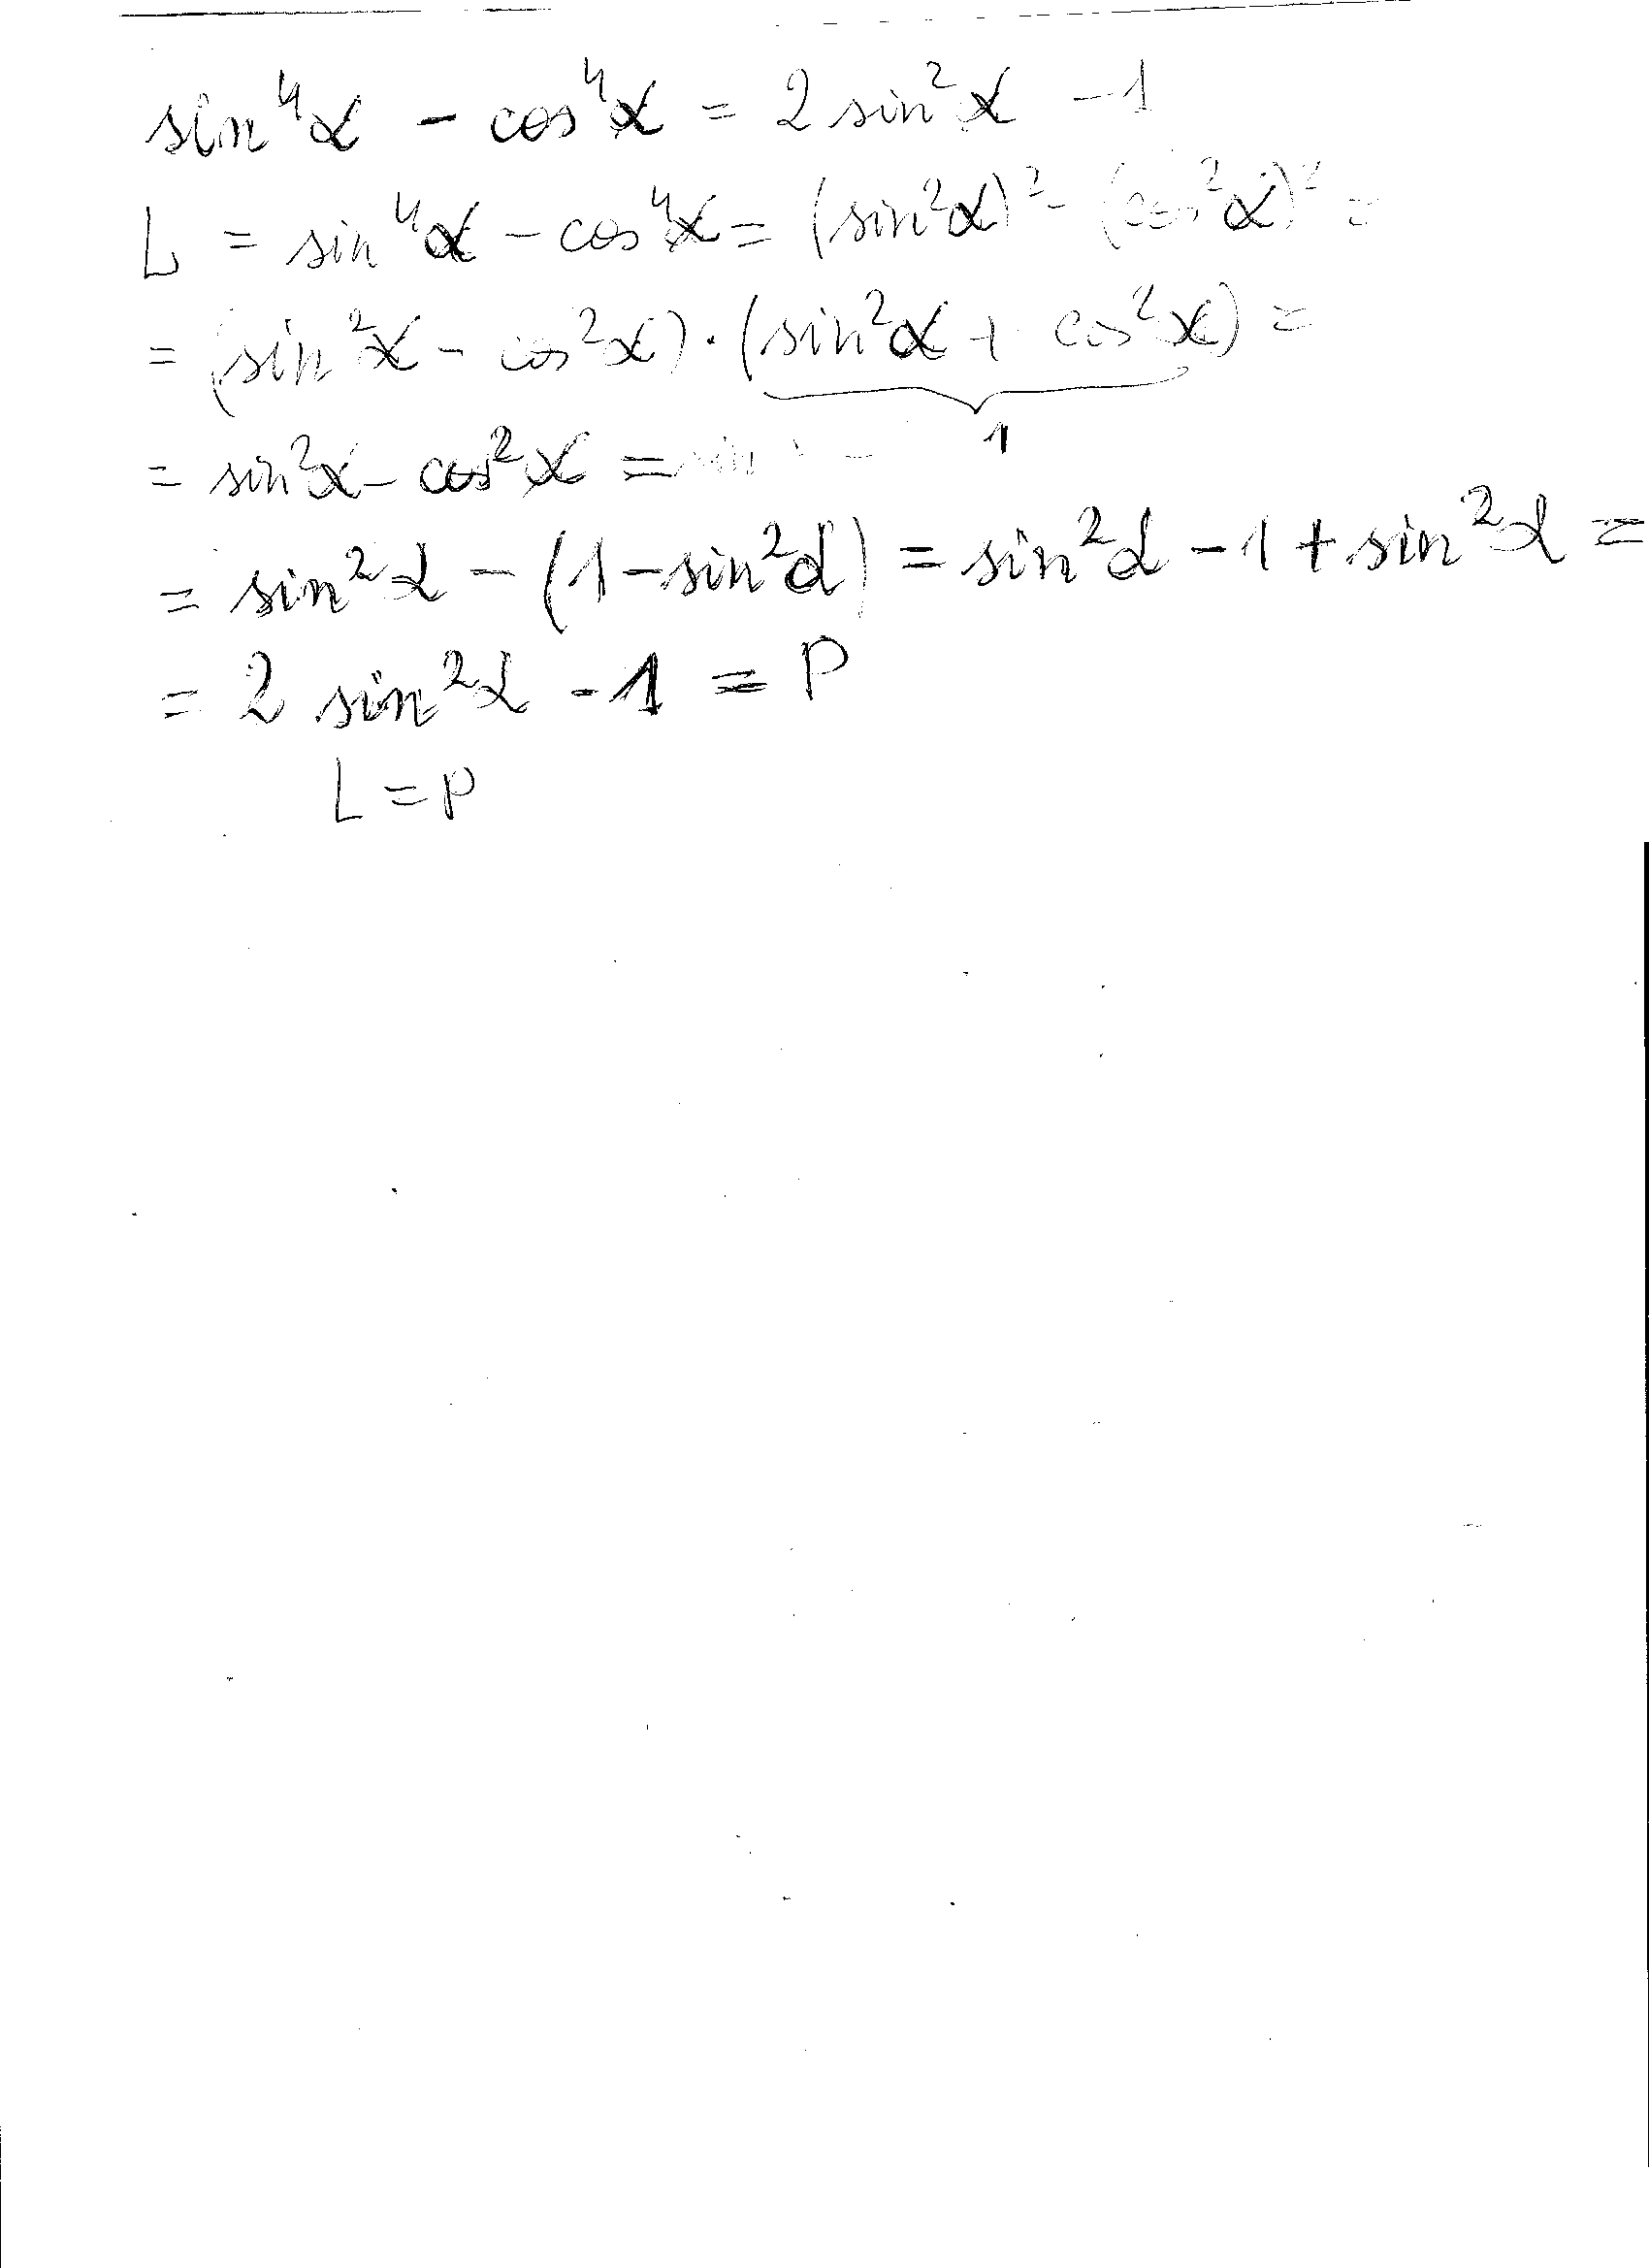 sin⁴α - cos⁴α = 2 sin²α - 1
L = sin⁴α - cos⁴α = (sin²α)² - (cos²α)² =
= (sin²α - cos²α) · (sin²α + cos²α) =
1
= sin²α - cos²α = sin
= sin²α - (1 - sin²α) = sin²α - 1 + sin²α =
= 2 sin²α - 1 = P
L = P